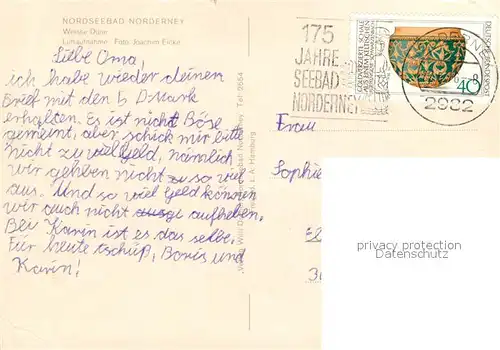 NORDSEEBAD NORDERNEY
Weisse Düne
Luftaufnahme Foto: Joachim Eicke
Liebe Oma!
ich habe wieder deinen
Brief mit den 5 D-Mark
erhalten. Es ist nicht Böse
gemeint, aber schick mir bitte
nicht zu viel Geld, nämlich
wir geben nicht zu so viel
aus. Und so viel Geld können
wir auch nicht aufheben.
Bei Karin ist es das selbe.
Für heute tschüß, Boris und
Karin!
175
JAHRE
SEEBAD
NORDERNEY
DEUTSCHE BUNDESPOST
GOLDVERZIERTE SCHALE
AUS EINEM KELTISCHEN
40
2982
Frau
Sophie
privacy protection
Datenschutz